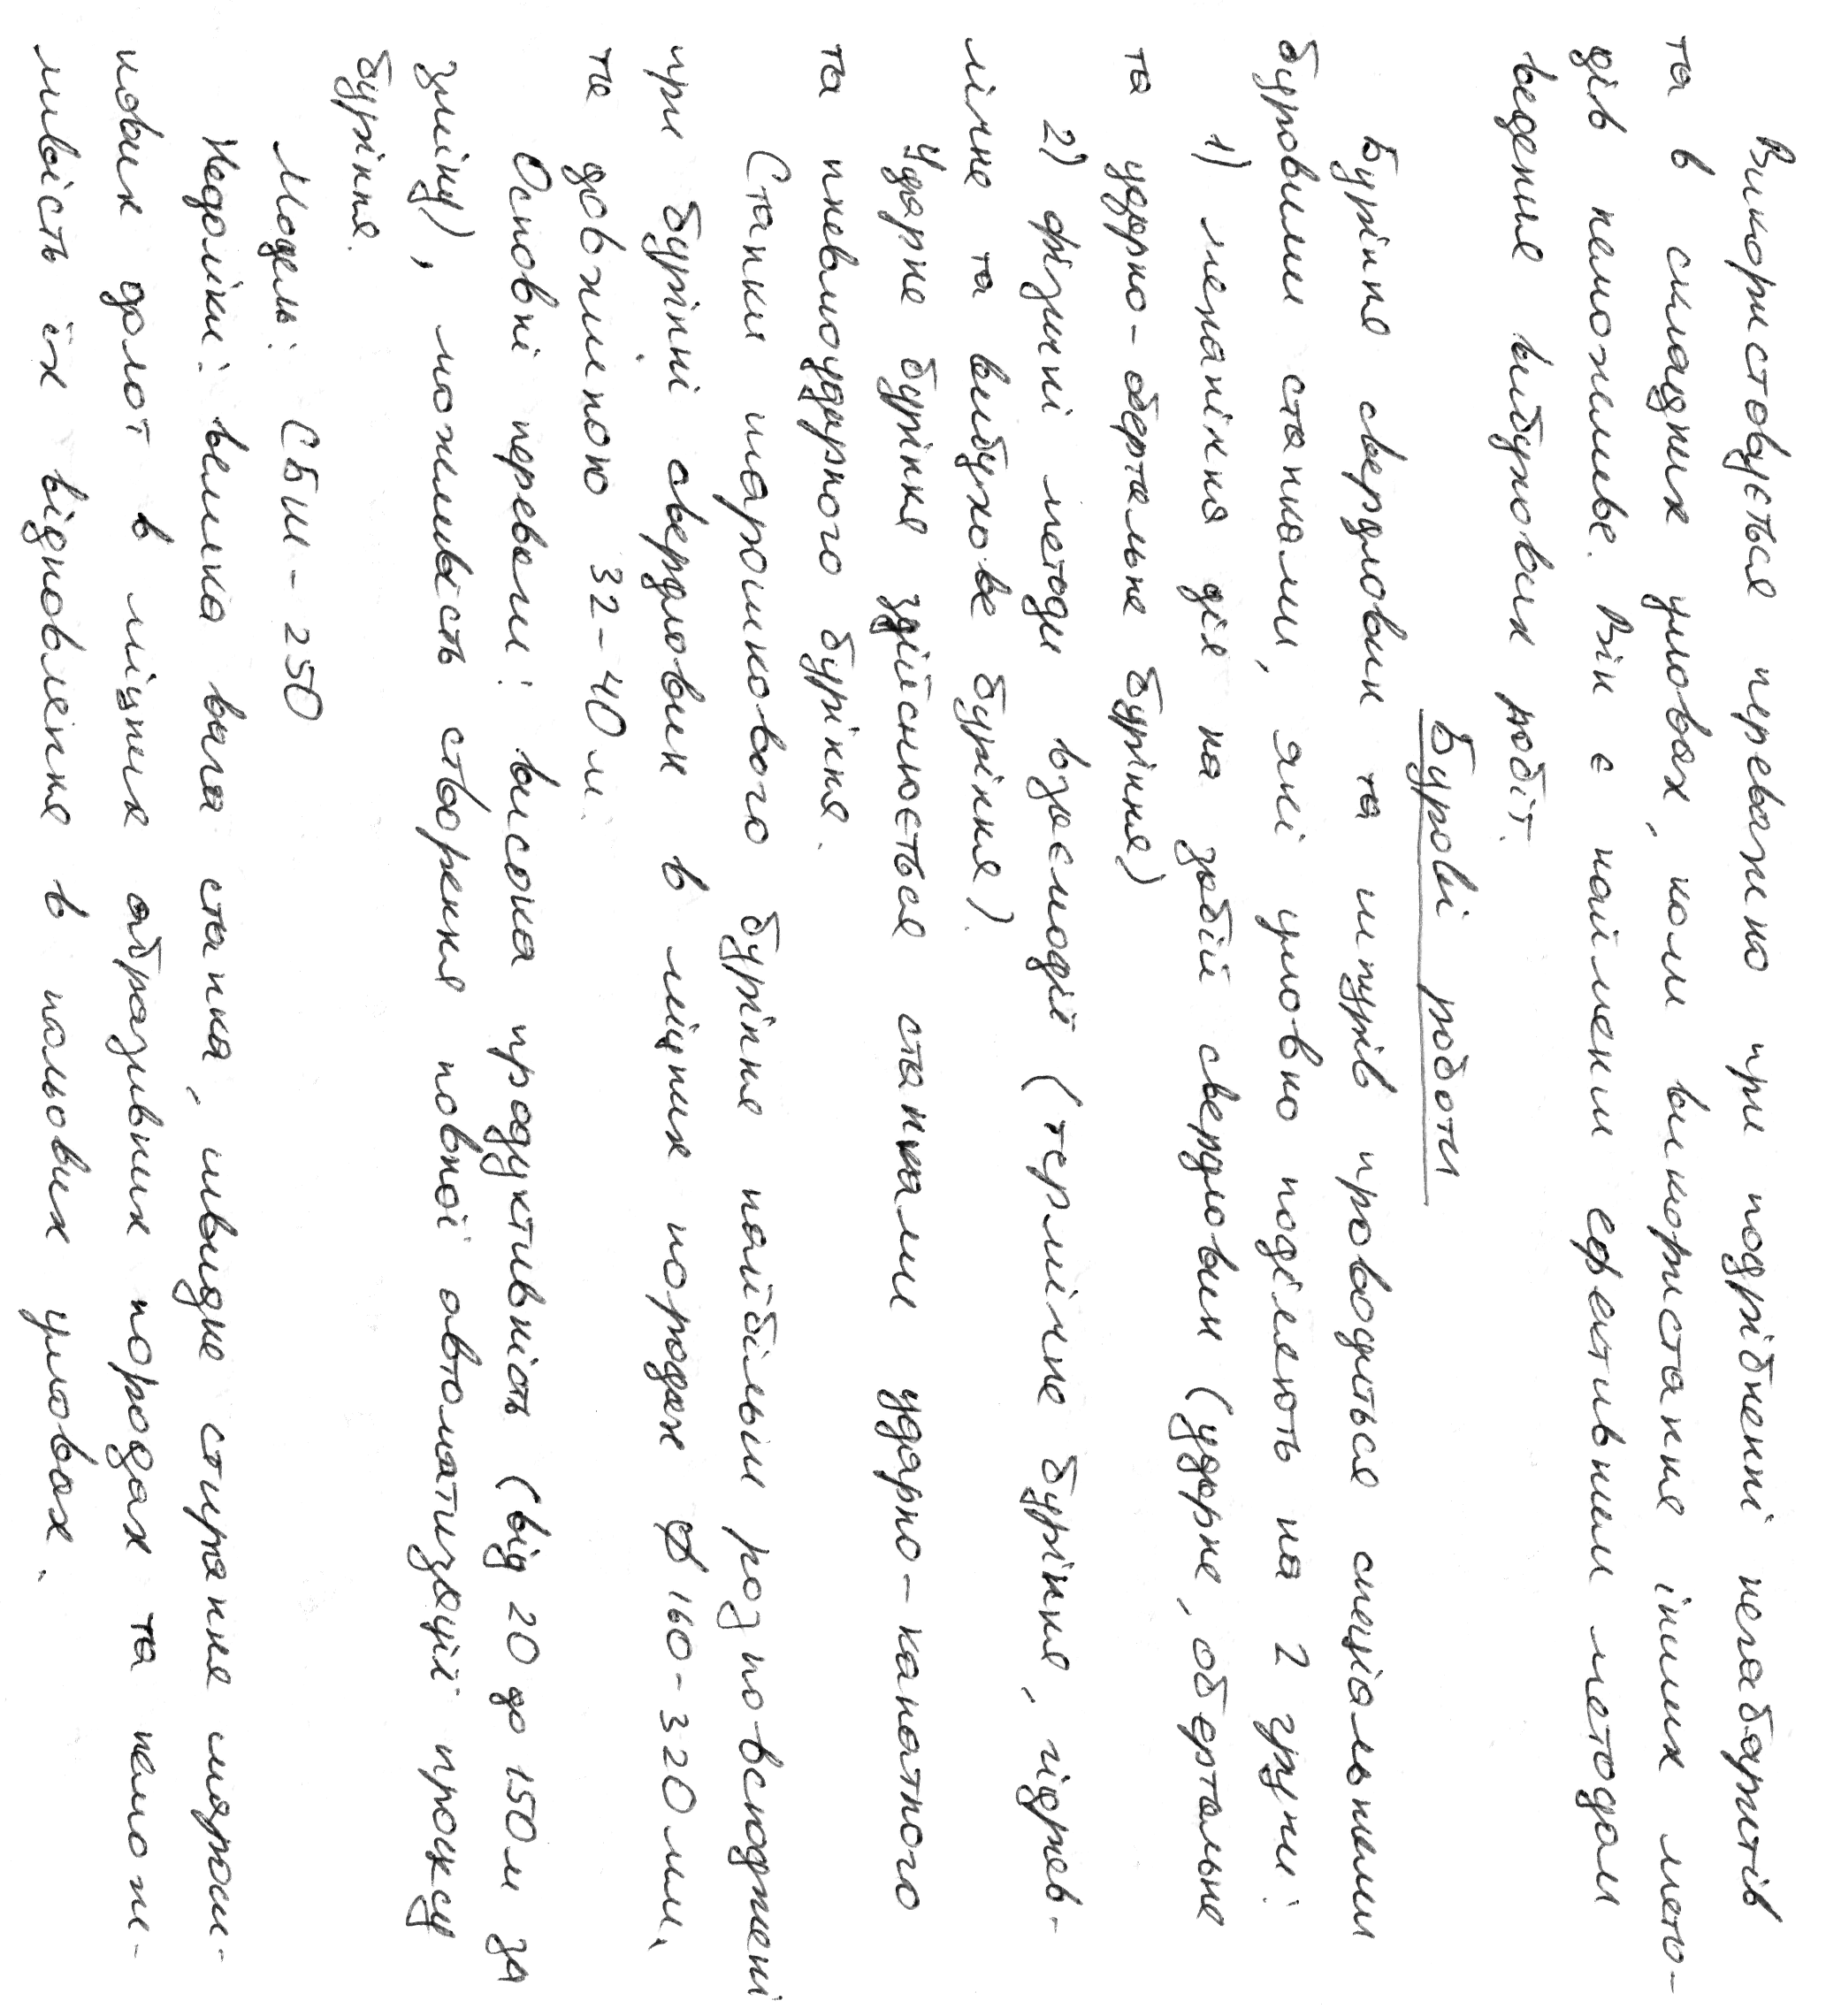 Використовується переважно при подрібненні негабаритів
та в складних умовах, коли використання інших мето-
дів неможливе. Він є найменш ефективним методом
ведення вибухових робіт.
Бурові роботи
Буріння свердловин та шпурів проводиться спеціальними
буровими станками, які умовно поділяють на 2 групи:
1) механічна дія на забій свердловин (ударне, обертальне
та ударно-обертальне буріння)
2) фізичні методи взаємодії (термічне буріння, гідрав-
лічне та вибухове буріння).
Ударне буріння здійснюється станками ударно-канатного
та пневмоударного буріння.
Станки шарошкового буріння найбільш розповсюджені
при бурінні свердловин в міцних породах ⌀ 160-320 мм,
та довжиною 32-40 м.
Основні переваги: висока продуктивність (від 20 до 150 м за
зміну), можливість створення повної автоматизації процесу
буріння.
Модель: СБШ-250
Недоліки: велика вага станка, швидке стирання шарош-
кових долот в міцних абразивних породах та немож-
ливість їх відновлення в польових умовах.